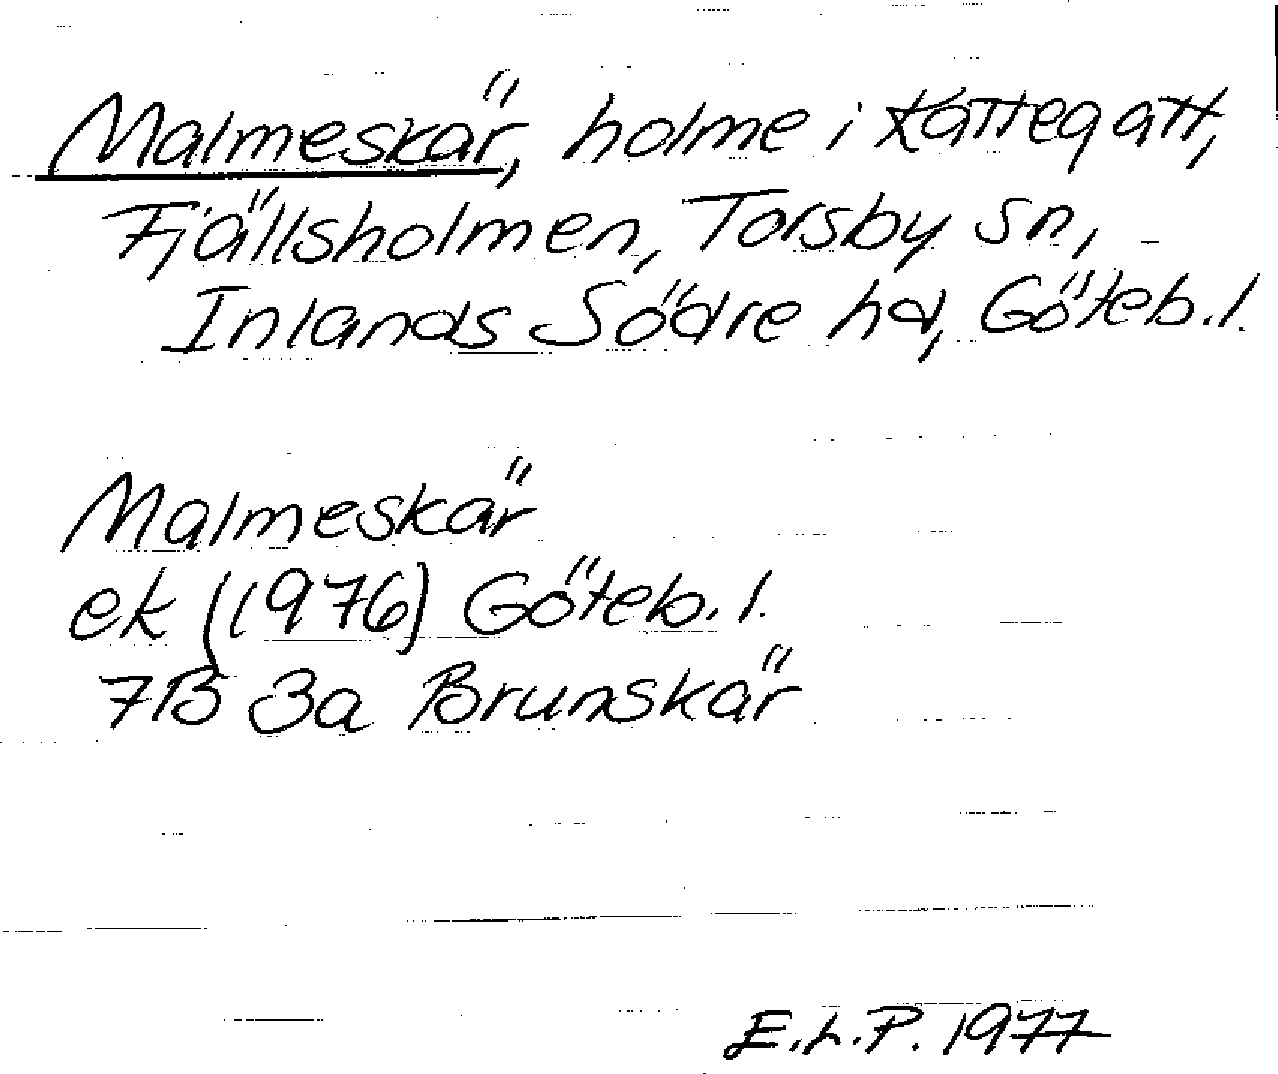 Malmeskär, holme i Kattegatt,
Fjällsholmen, Torsby sn,
Inlands Södre hd, Göteb. l.
Malmeskär
ek (1976) Göteb. l.
7B 3a Brunskär
E.L.P. 1977